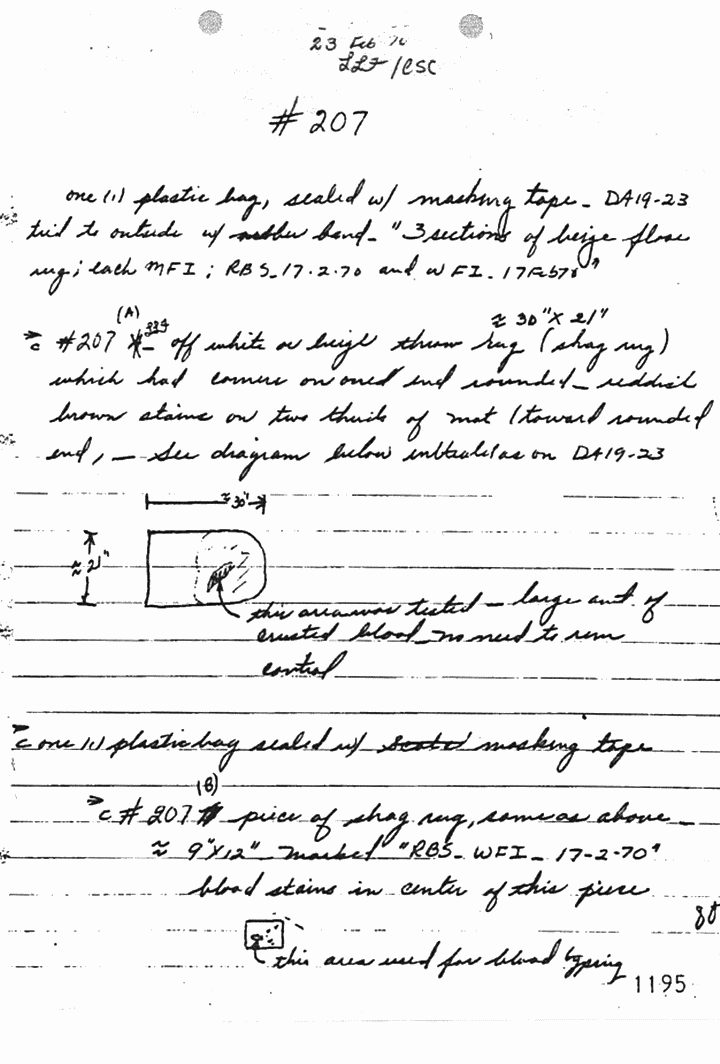 23 Feb 70
LLF/CSC
# 207
one (1) plastic bag, sealed w/ masking tape - DA19-23
tied to outside w/ rubber band - "3 sections of beige floor
rug; each MFI; RBS-17-2-70 and WFI-17Feb70"
(A) ≈ 30" X 21"
c #207 off white or beige throw rug (shag rug)
which had corners on oned end rounded - reddish
brown stains on two thirds of mat (toward rounded
end, - See diagram below as on DA19-23
≈30"
≈ 21"
this area was tested - large amt of
crusted blood - no need to run
control
c one (1) plastic bag sealed w/ masking tape
(B)
c # 207 piece of shag rug, same as above -
≈ 9"X12" marked "RBS-WFI-17-2-70"
blood stains in center of this piece
this area used for blood typing
1195